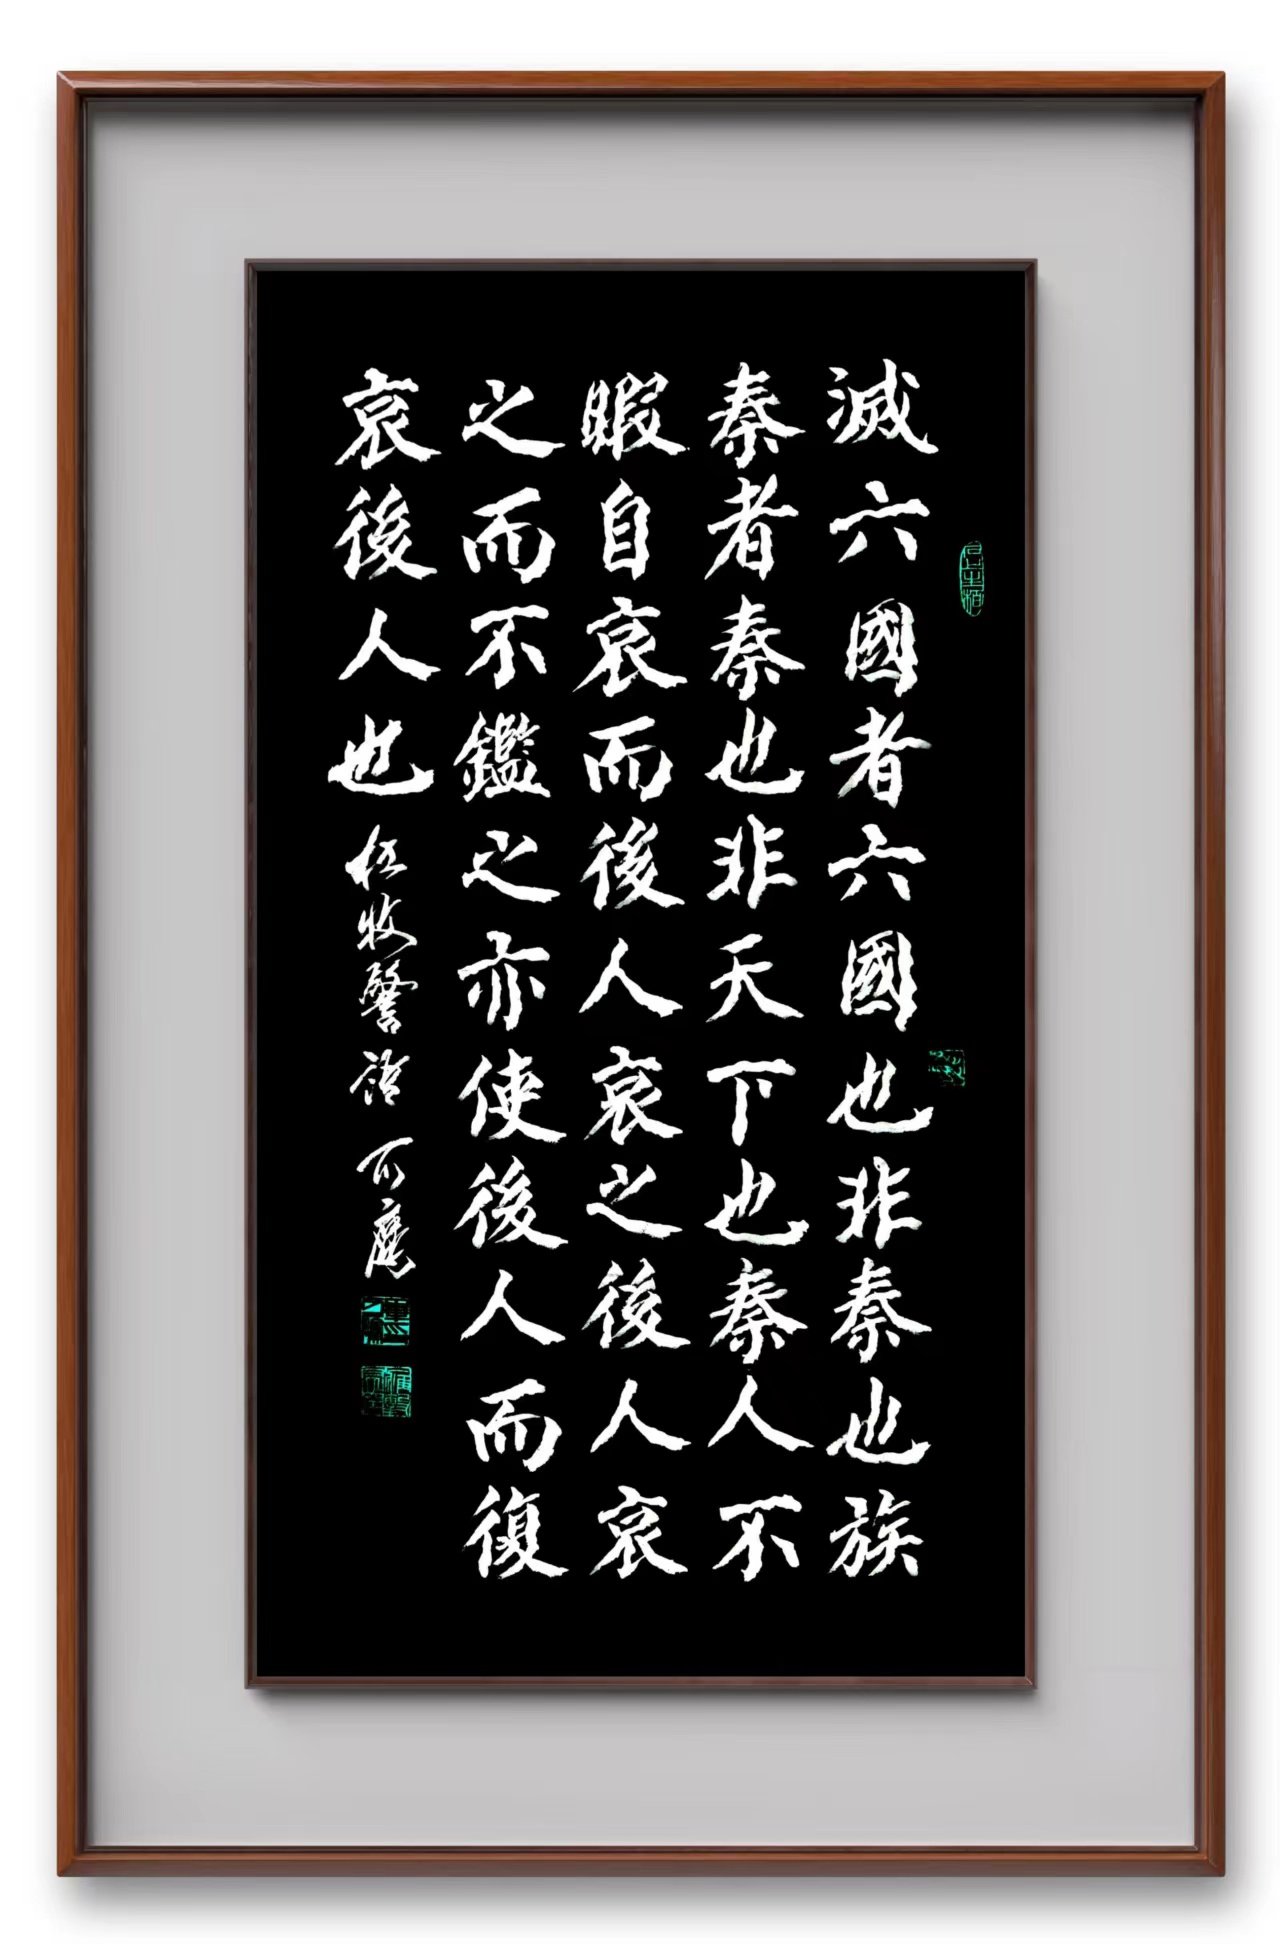 滅六國者六國也非秦也族
秦者秦也非天下也秦人不
暇自哀而後人哀之後人哀
之而不鑑之亦使後人而復
哀後人也
杜牧警語